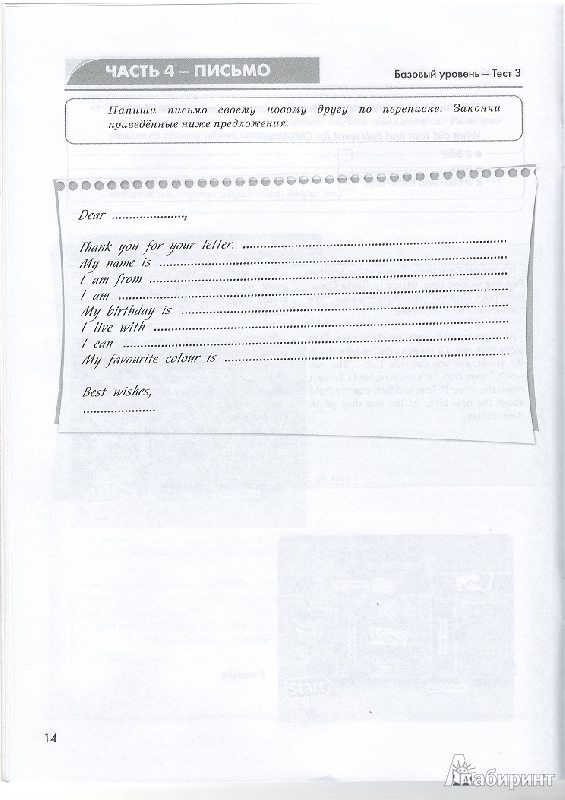 ЧАСТЬ 4 – ПИСЬМО
Базовый уровень – Тест 3
Напиши письмо своему новому другу по переписке. Закончи
приведённые ниже предложения.
Dear ....................,
Thank you for your letter. ....................
My name is ....................
I am from ....................
I am ....................
My birthday is ....................
I live with ....................
I can ....................
My favourite colour is ....................
Best wishes,
....................
14
Лабиринт